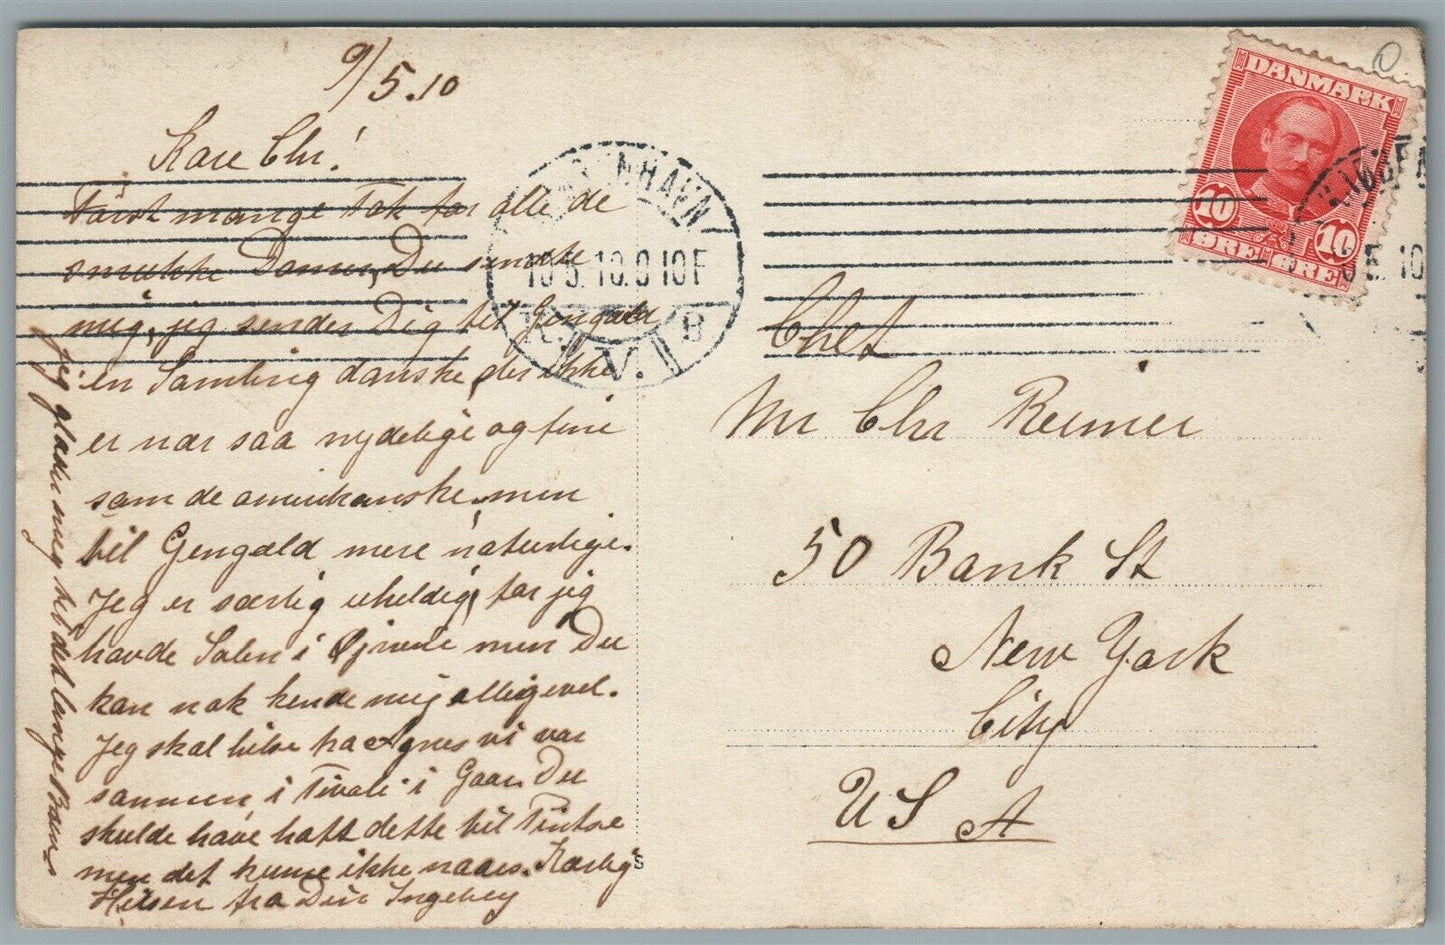 9/5.10
Kære Chr!
Først mange Tak for alle de
smukke Damer, Du sendte
mig, jeg sender Dig til Gengæld
en Samling danske, der ikke
er nær saa nydelige og fine
som de amerikanske men
til Gengæld mere naturlige.
Jeg er særlig uheldig, for jeg
havde Solen i Øjnene men Du
kan nok kende mig alligevel.
Jeg skal hilse fra Agnes vi var
sammen i Tivoli i Gaar. Du
skulde have haft dette til Pintse
men det kunne ikke naaes. Kærlig
Hilsen fra Din Ingeborg
Jeg glæder mig til det lange Brev
KJØBENHAVN
10.5.10.9 10F
K. V. B
DANMARK
10 10
ØRE ØRE
KJØBEN
5.10
0
Chef
Mr Chr Reimer
50 Bank St
New York
City
U S A
s